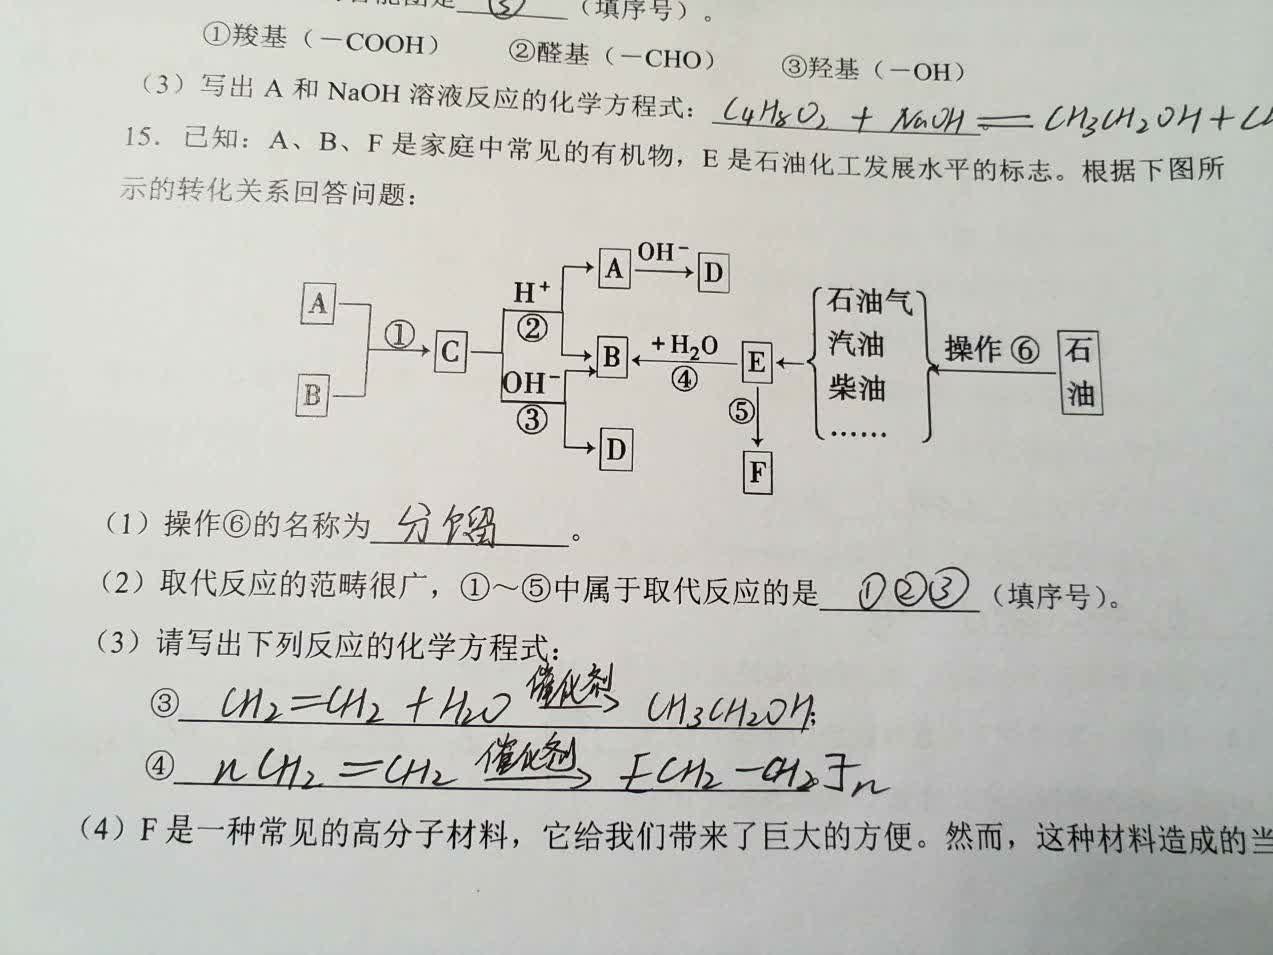 ②（填序号）。
①羧基（－COOH） ②醛基（－CHO） ③羟基（－OH）
（3）写出 A 和 NaOH 溶液反应的化学方程式：C4H8O2 + NaOH = CH3CH2OH +
15．已知：A、B、F 是家庭中常见的有机物，E 是石油化工发展水平的标志。根据下图所
示的转化关系回答问题：
A B ① C
H⁺ ② A OH⁻ D
OH⁻ ③ B D
+H₂O ④ E ⑤ F
石油气
汽油
柴油
……
操作⑥ 石油
（1）操作⑥的名称为 分馏 。
（2）取代反应的范畴很广，①～⑤中属于取代反应的是 ①②③ （填序号）。
（3）请写出下列反应的化学方程式：
③ CH2=CH2 + H2O 催化剂→ CH3CH2OH；
④ nCH2=CH2 催化剂→ [CH2-CH2]n
（4）F 是一种常见的高分子材料，它给我们带来了巨大的方便。然而，这种材料造成的当